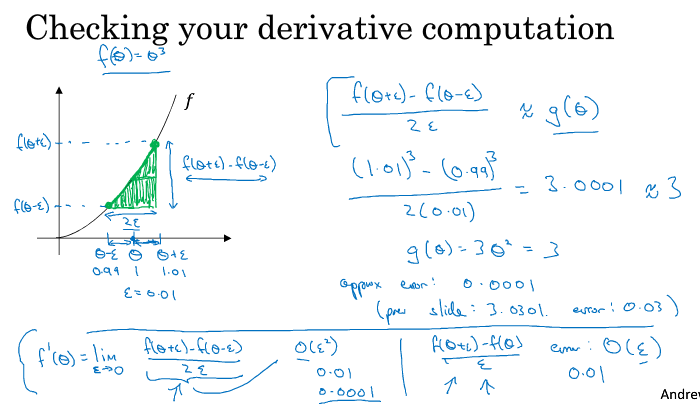 Checking your derivative computation
f(θ) = θ³
f
f(θ+ε)
f(θ-ε)
f(θ+ε) - f(θ-ε)
2ε
θ-ε θ θ+ε
0.99 1 1.01
ε = 0.01
f(θ+ε) - f(θ-ε)
2ε
≈ g(θ)
(1.01)³ - (0.99)³
2(0.01)
= 3.0001 ≈ 3
g(θ) = 3θ² = 3
approx error: 0.0001
(prev slide: 3.0301. error: 0.03)
f'(θ) = lim ε→0
f(θ+ε) - f(θ-ε)
2ε
O(ε²)
0.01
0.0001
f(θ+ε) - f(θ)
ε
error: O(ε)
0.01
Andrew